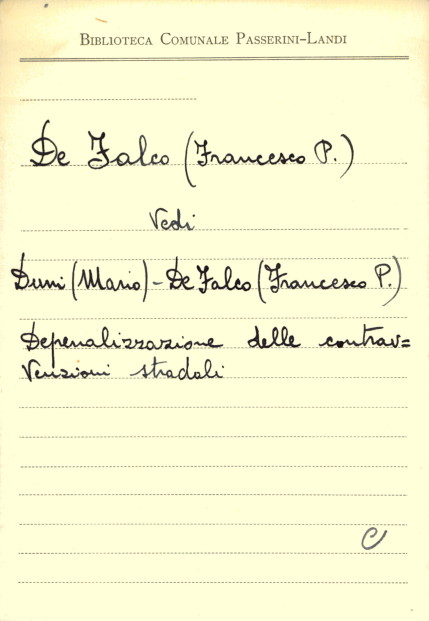 BIBLIOTECA COMUNALE PASSERINI-LANDI
De Falco (Francesco P.)
Vedi
Duni (Mario) - De Falco (Francesco P.)
Depenalizzazione delle contrav=
venzioni stradali
C